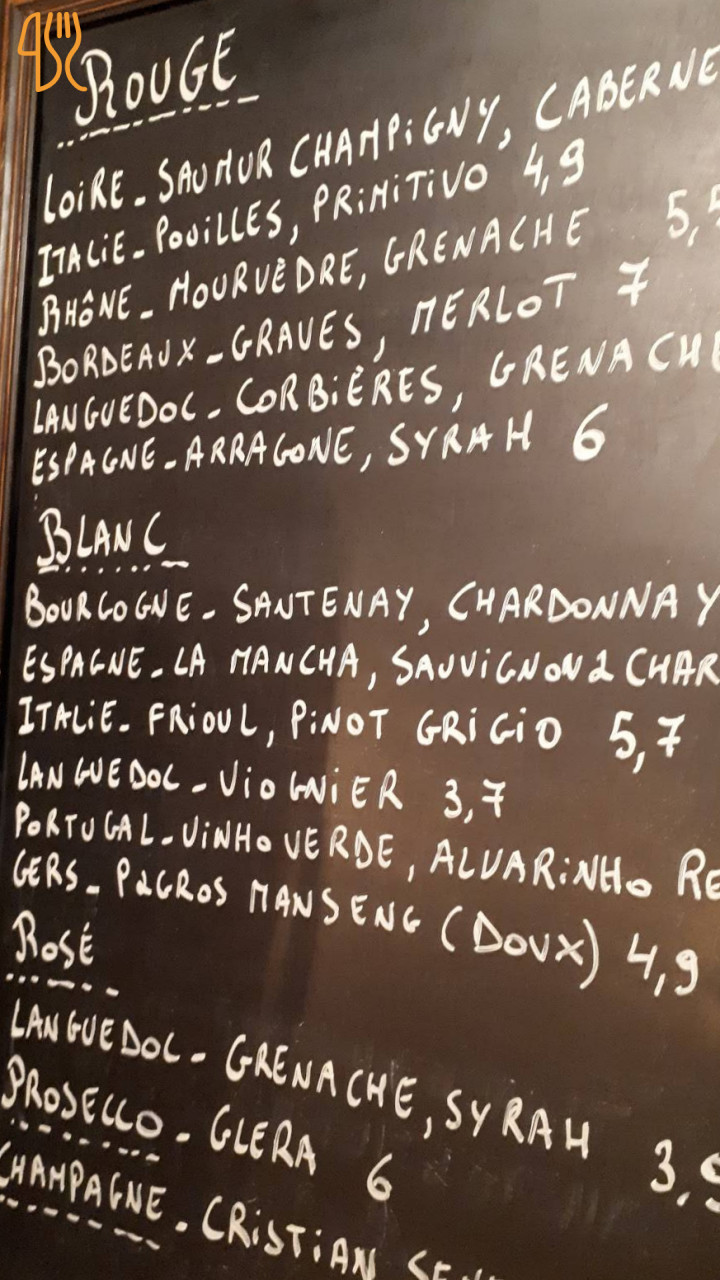 ROUGE
LOIRE - SAUMUR CHAMPIGNY, CABERNE
ITALIE - POUILLES, PRIMITIVO 4,9
RHÔNE - MOURVÈDRE, GRENACHE 5,5
BORDEAUX - GRAVES, MERLOT 7
LANGUEDOC - CORBIÈRES, GRENACHE
ESPAGNE - ARRAGONE, SYRAH 6
BLANC
BOURGOGNE - SANTENAY, CHARDONNAY
ESPAGNE - LA MANCHA, SAUVIGNON & CHAR
ITALIE - FRIOUL, PINOT GRIGIO 5,7
LANGUEDOC - VIOGNIER 3,7
PORTUGAL - VINHO VERDE, ALVARINHO RE
GERS - P&GROS MANSENG (DOUX) 4,9
ROSÉ
LANGUEDOC - GRENACHE, SYRAH 3,9
PROSECCO - GLERA 6
CHAMPAGNE - CRISTIAN SEN